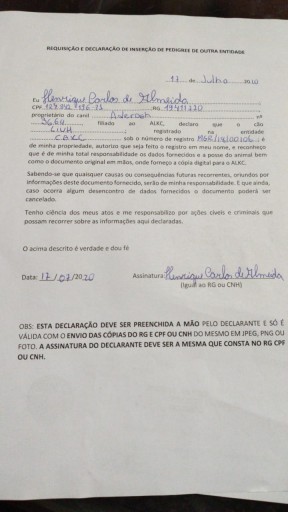 REQUISIÇÃO E DECLARAÇÃO DE INSERÇÃO DE PEDIGREE DE OUTRA ENTIDADE
17 de Julho
Eu Henrique Carlos de Almeida
CPF RG
proprietário do canil nº
filiado ao ALKC, declaro que o cão
registrado na entidade
sob o número de registro , é
de minha propriedade, autorizo que seja feito o registro em meu nome, e reconheço
que é de minha total responsabilidade os dados fornecidos e a posse do animal bem
como o documento original em mãos, onde forneço a cópia digital para a ALKC.
Sabendo-se que quaisquer causas ou consequências futuras recorrentes, oriundos por
informações deste documento fornecido, serão de minha responsabilidade. E que ainda,
caso ocorra algum desencontro de dados fornecidos o documento poderá ser
cancelado.
Tenho ciência dos meus atos e me responsabilizo por ações cíveis e criminais que
possam recorrer sobre as informações aqui declaradas.
O acima descrito é verdade e dou fé
Data: 17/07/2020 Assinatura: Henrique Carlos de Almeida
(Igual ao RG ou CNH)
OBS: ESTA DECLARAÇÃO DEVE SER PREENCHIDA A MÃO PELO DECLARANTE E SÓ É
VÁLIDA COM O ENVIO DAS CÓPIAS DO RG E CPF OU CNH DO MESMO EM JPEG, PNG OU
FOTO. A ASSINATURA DO DECLARANTE DEVE SER A MESMA QUE CONSTA NO RG CPF
OU CNH.